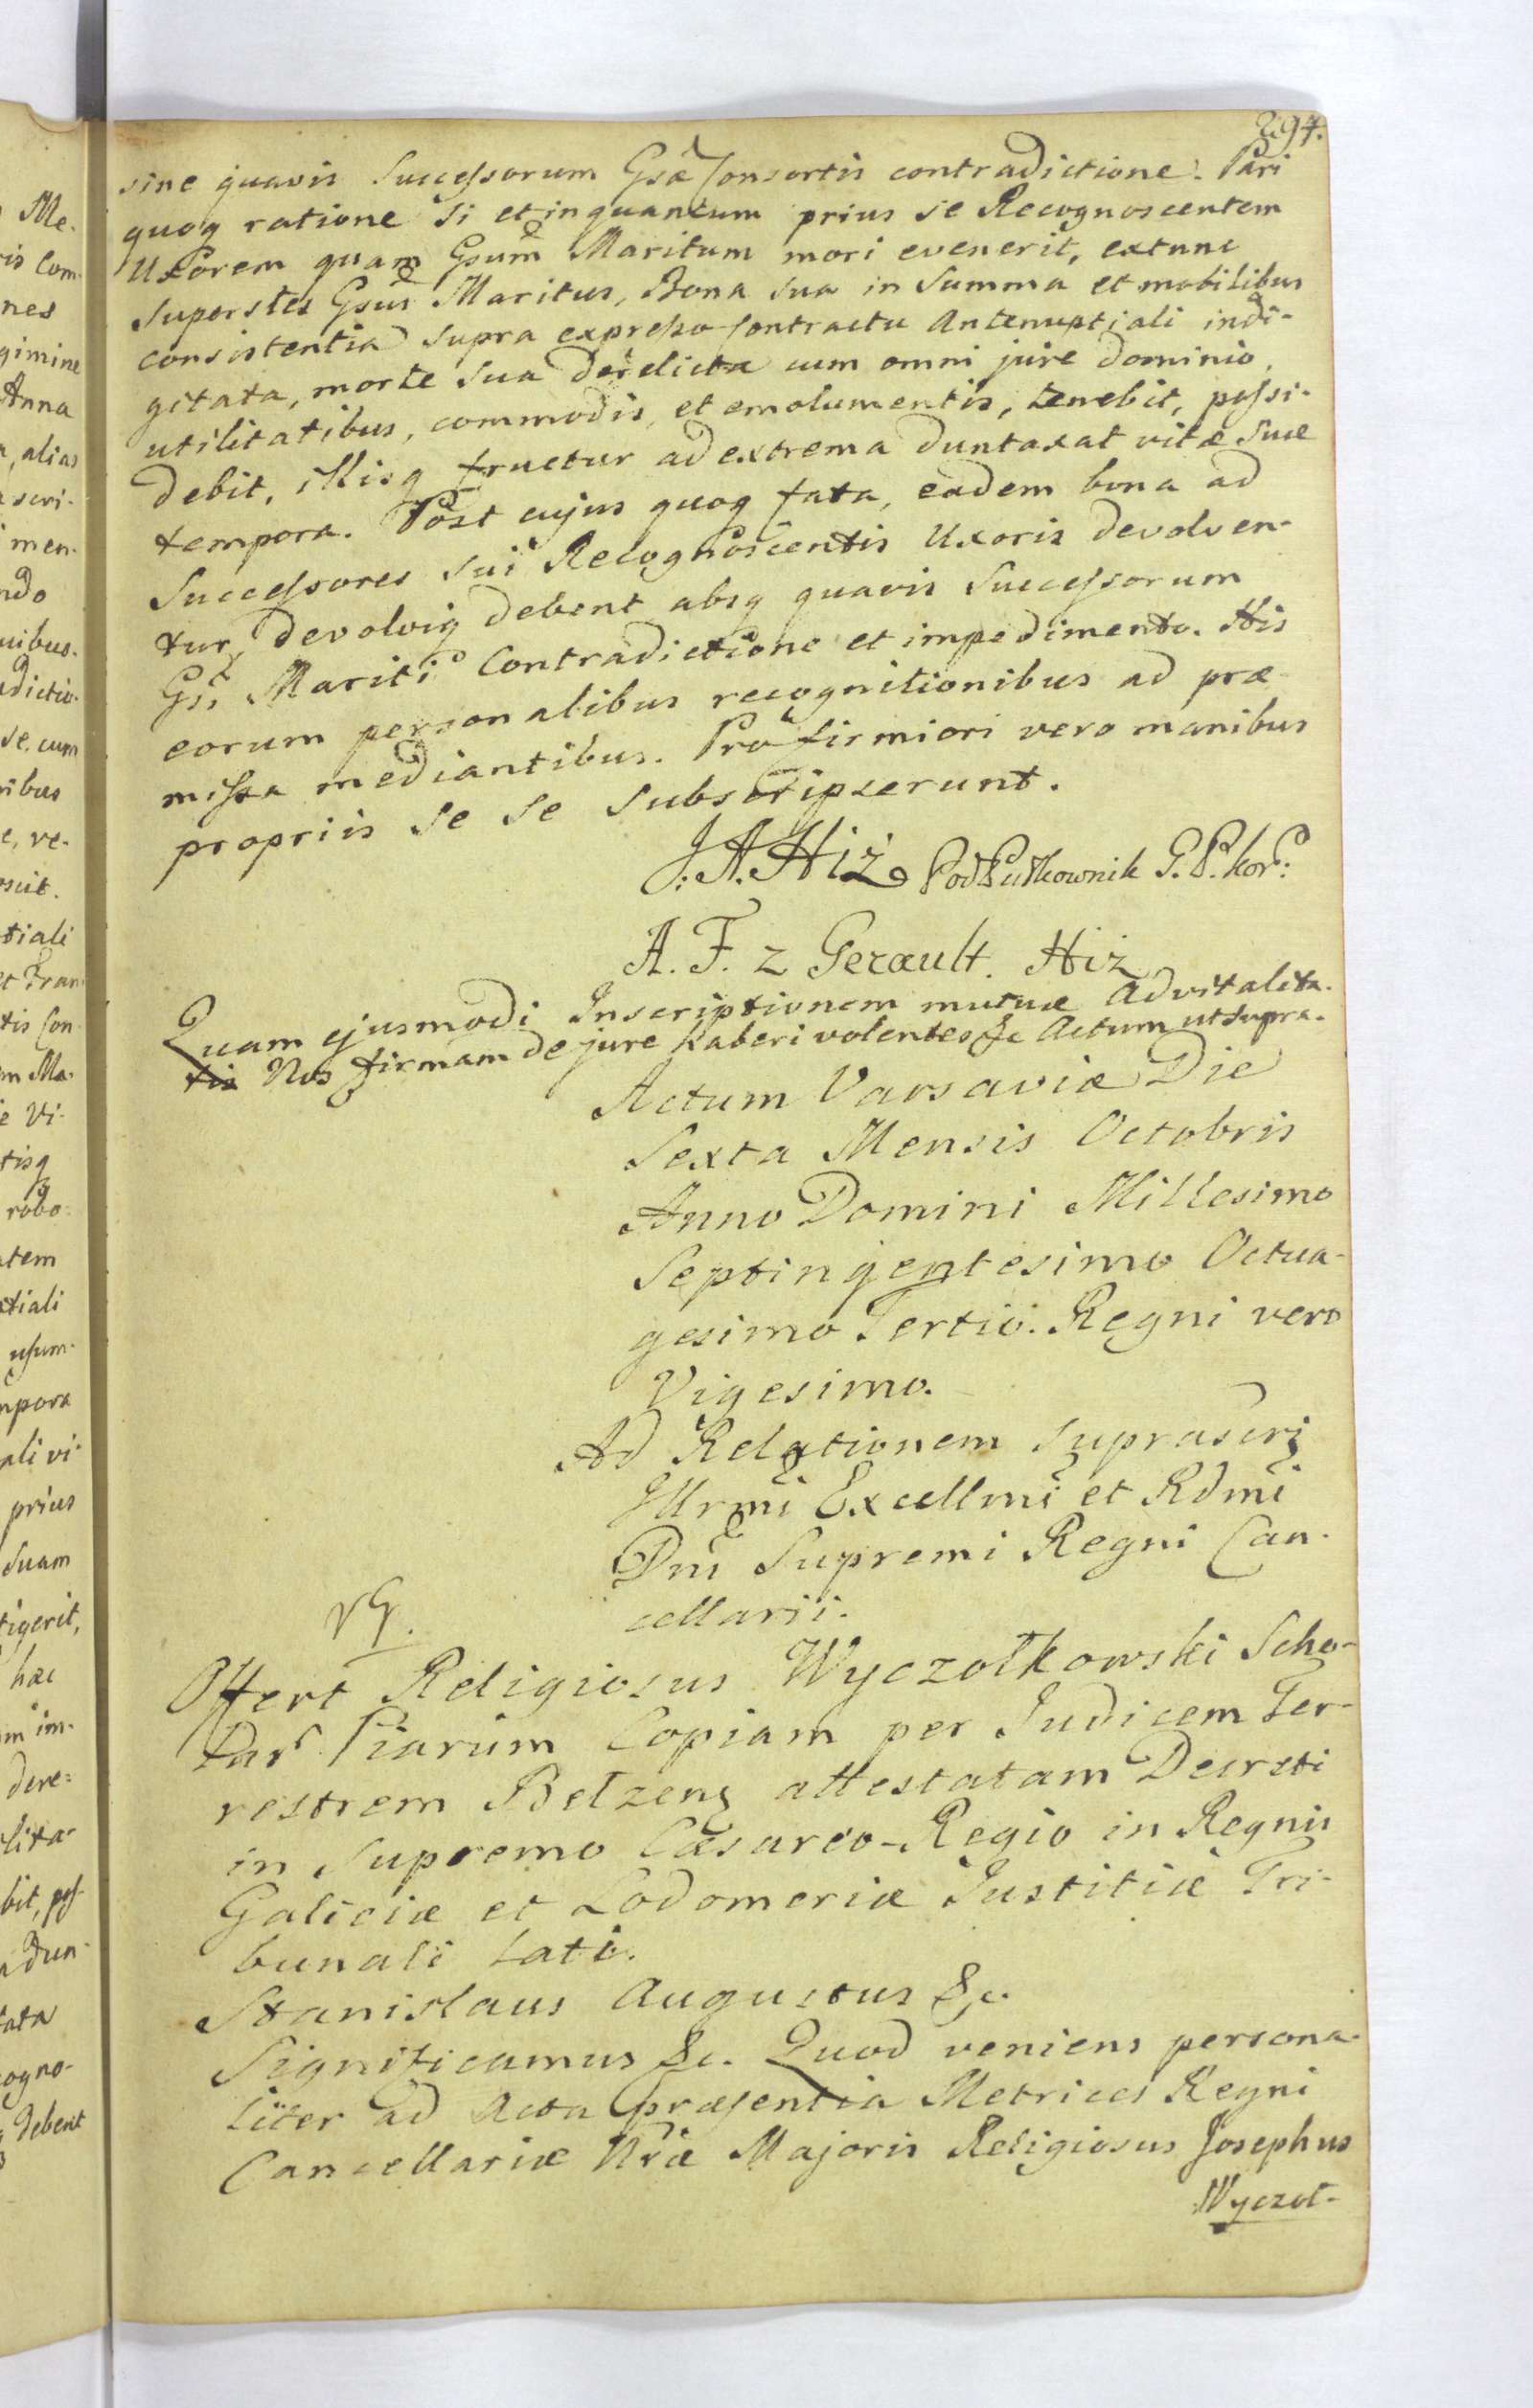 294.
sine quavis Successorum Gsae Consortis contradictione. Pari
quoq ratione si et inquantum prius se Recognoscentem
Uxorem quam Gsum Maritum mori evenerit, extunc
superstes Gsus Maritus, Bona sua in Summa et mobilibus
consistentia supra expresso Contractu Antenuptiali indi-
gitata, morte sua derelicta cum omni jure dominio,
utilitatibus, commodis, et emolumentis, tenebit, possi-
debit, illisq fruetur ad extrema duntaxat vitæ suæ
tempora. Post cujus quoq fata, eadem bona ad
Successores sui Recognoscentis Uxoris devolven-
tur, devolviq debent absq quavis Successorum
Gsi Mariti Contradictione et impedimento. His
eorum personalibus recognitionibus ad præ
missa mediantibus. Pro firmiori vero manibus
propriis se se subscripserunt.
J: A. Hiż PodPułkownik G. P. kor:
A. F. z Gerault. Hiż
Quam ejusmodi Inscriptionem mutuæ Advitalita-
tis Nos firmam de jure haberi volentes &c Actum ut supra.
Actum Varsaviæ Die
Sexta Mensis Octobris
Anno Domini Millesimo
Septingentesimo Octua-
gesimo Tertio. Regni vero
Vigesimo.
Ad Relationem suprascri
Illrmi Excellmi et Rdmi
Dni Supremi Regni Can-
cellarii.
Offert Religiosus Wyczołkowski Scho-
lar Piarum Copiam per Judicem Ter-
restrem Bełzens attestatam Decreti
in Supremo Cæsareo-Regio in Regnis
Galiciæ et Lodomeriæ Justitiæ Tri-
bunali lati.
Stanislaus Augustus &c.
Significamus &c. Quod veniens persona-
liter ad Acta præsentia Metrices Regni
Cancellariæ Nræ Majoris Religiosus Josephus
Wyczoł-